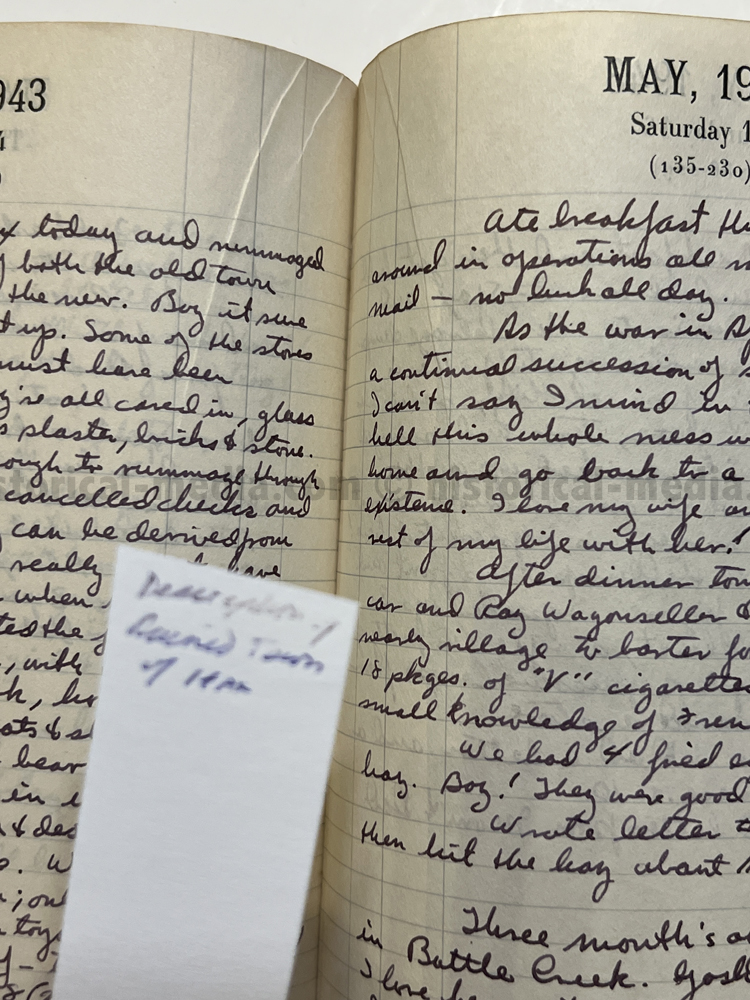 943
4
today and rummaged
both the old town
the new. Boy it sure
t up. Some of the stores
must have been
y're all caved in, glass
s plaster, bricks & stone.
ough to rummage through
cancelled checks and
can be derived from
really have
when
ted the
, with
k,
oats & s
bear
in
& dec
. W
; on
toy
Description of
Ruined Town
of
MAY, 19
Saturday 1
(135-230)
Ate breakfast th
around in operations all m
mail – no luck all day.
As the war in Af
a continual succession of s
I can't say I mind in
hell this whole mess w
home and go back to a
existence. I love my wife an
rest of my life with her!
After dinner ton
car and Ray Wagonseller
nearby village to barter fo
18 pkges. of "V" cigarettes
small knowledge of Fren
We had 4 fried e
hay. Boy! They were good
Wrote letter t
then hit the hay about
Three month's a
in Battle Creek. Gosh
I love he
historical-media.com
historical-media